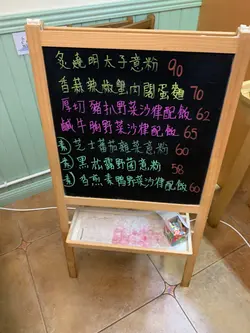 炙燒明太子意粉 90
香蒜辣椒蟹肉闊蛋麵 70
厚切豬扒野菜沙律配飯 62
鹹牛脷野菜沙律配飯 65
素 芝士蕃茄雜菜意粉 60
素 黑松露野菌意粉 58
素 香煎素鴨野菜沙律配飯 60